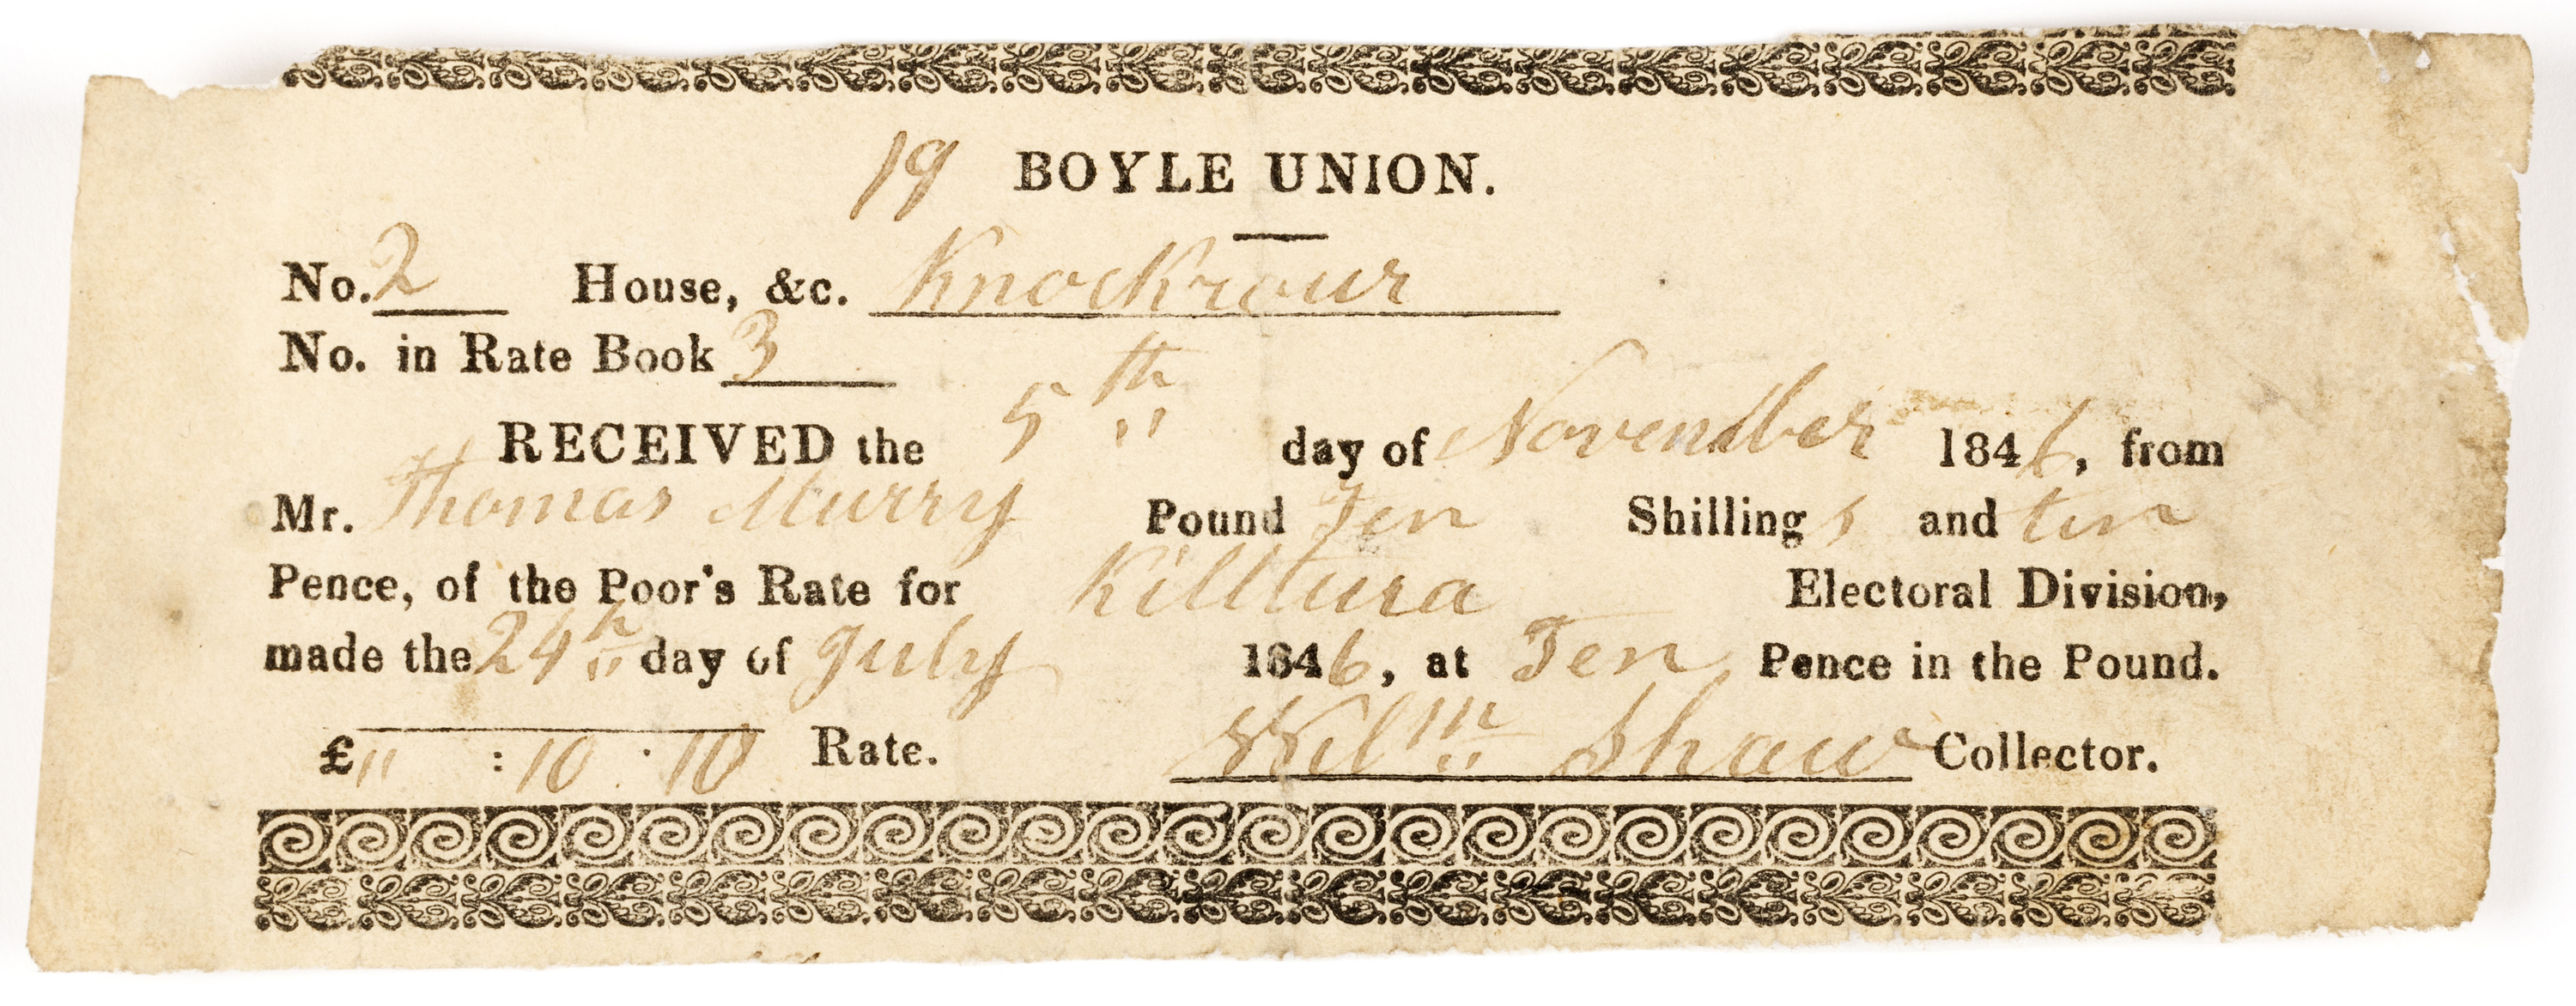 19 BOYLE UNION.
No. 2 House, &c. Knockrour
No. in Rate Book 3
RECEIVED the 5th day of November 1846, from
Mr. Thomas Murry Pound Ten Shillings and ten
Pence, of the Poor's Rate for Killtura Electoral Division,
made the 24th day of July 1846, at Ten Pence in the Pound.
£ " : 10 : 10 Rate. Willm Shaw Collector.